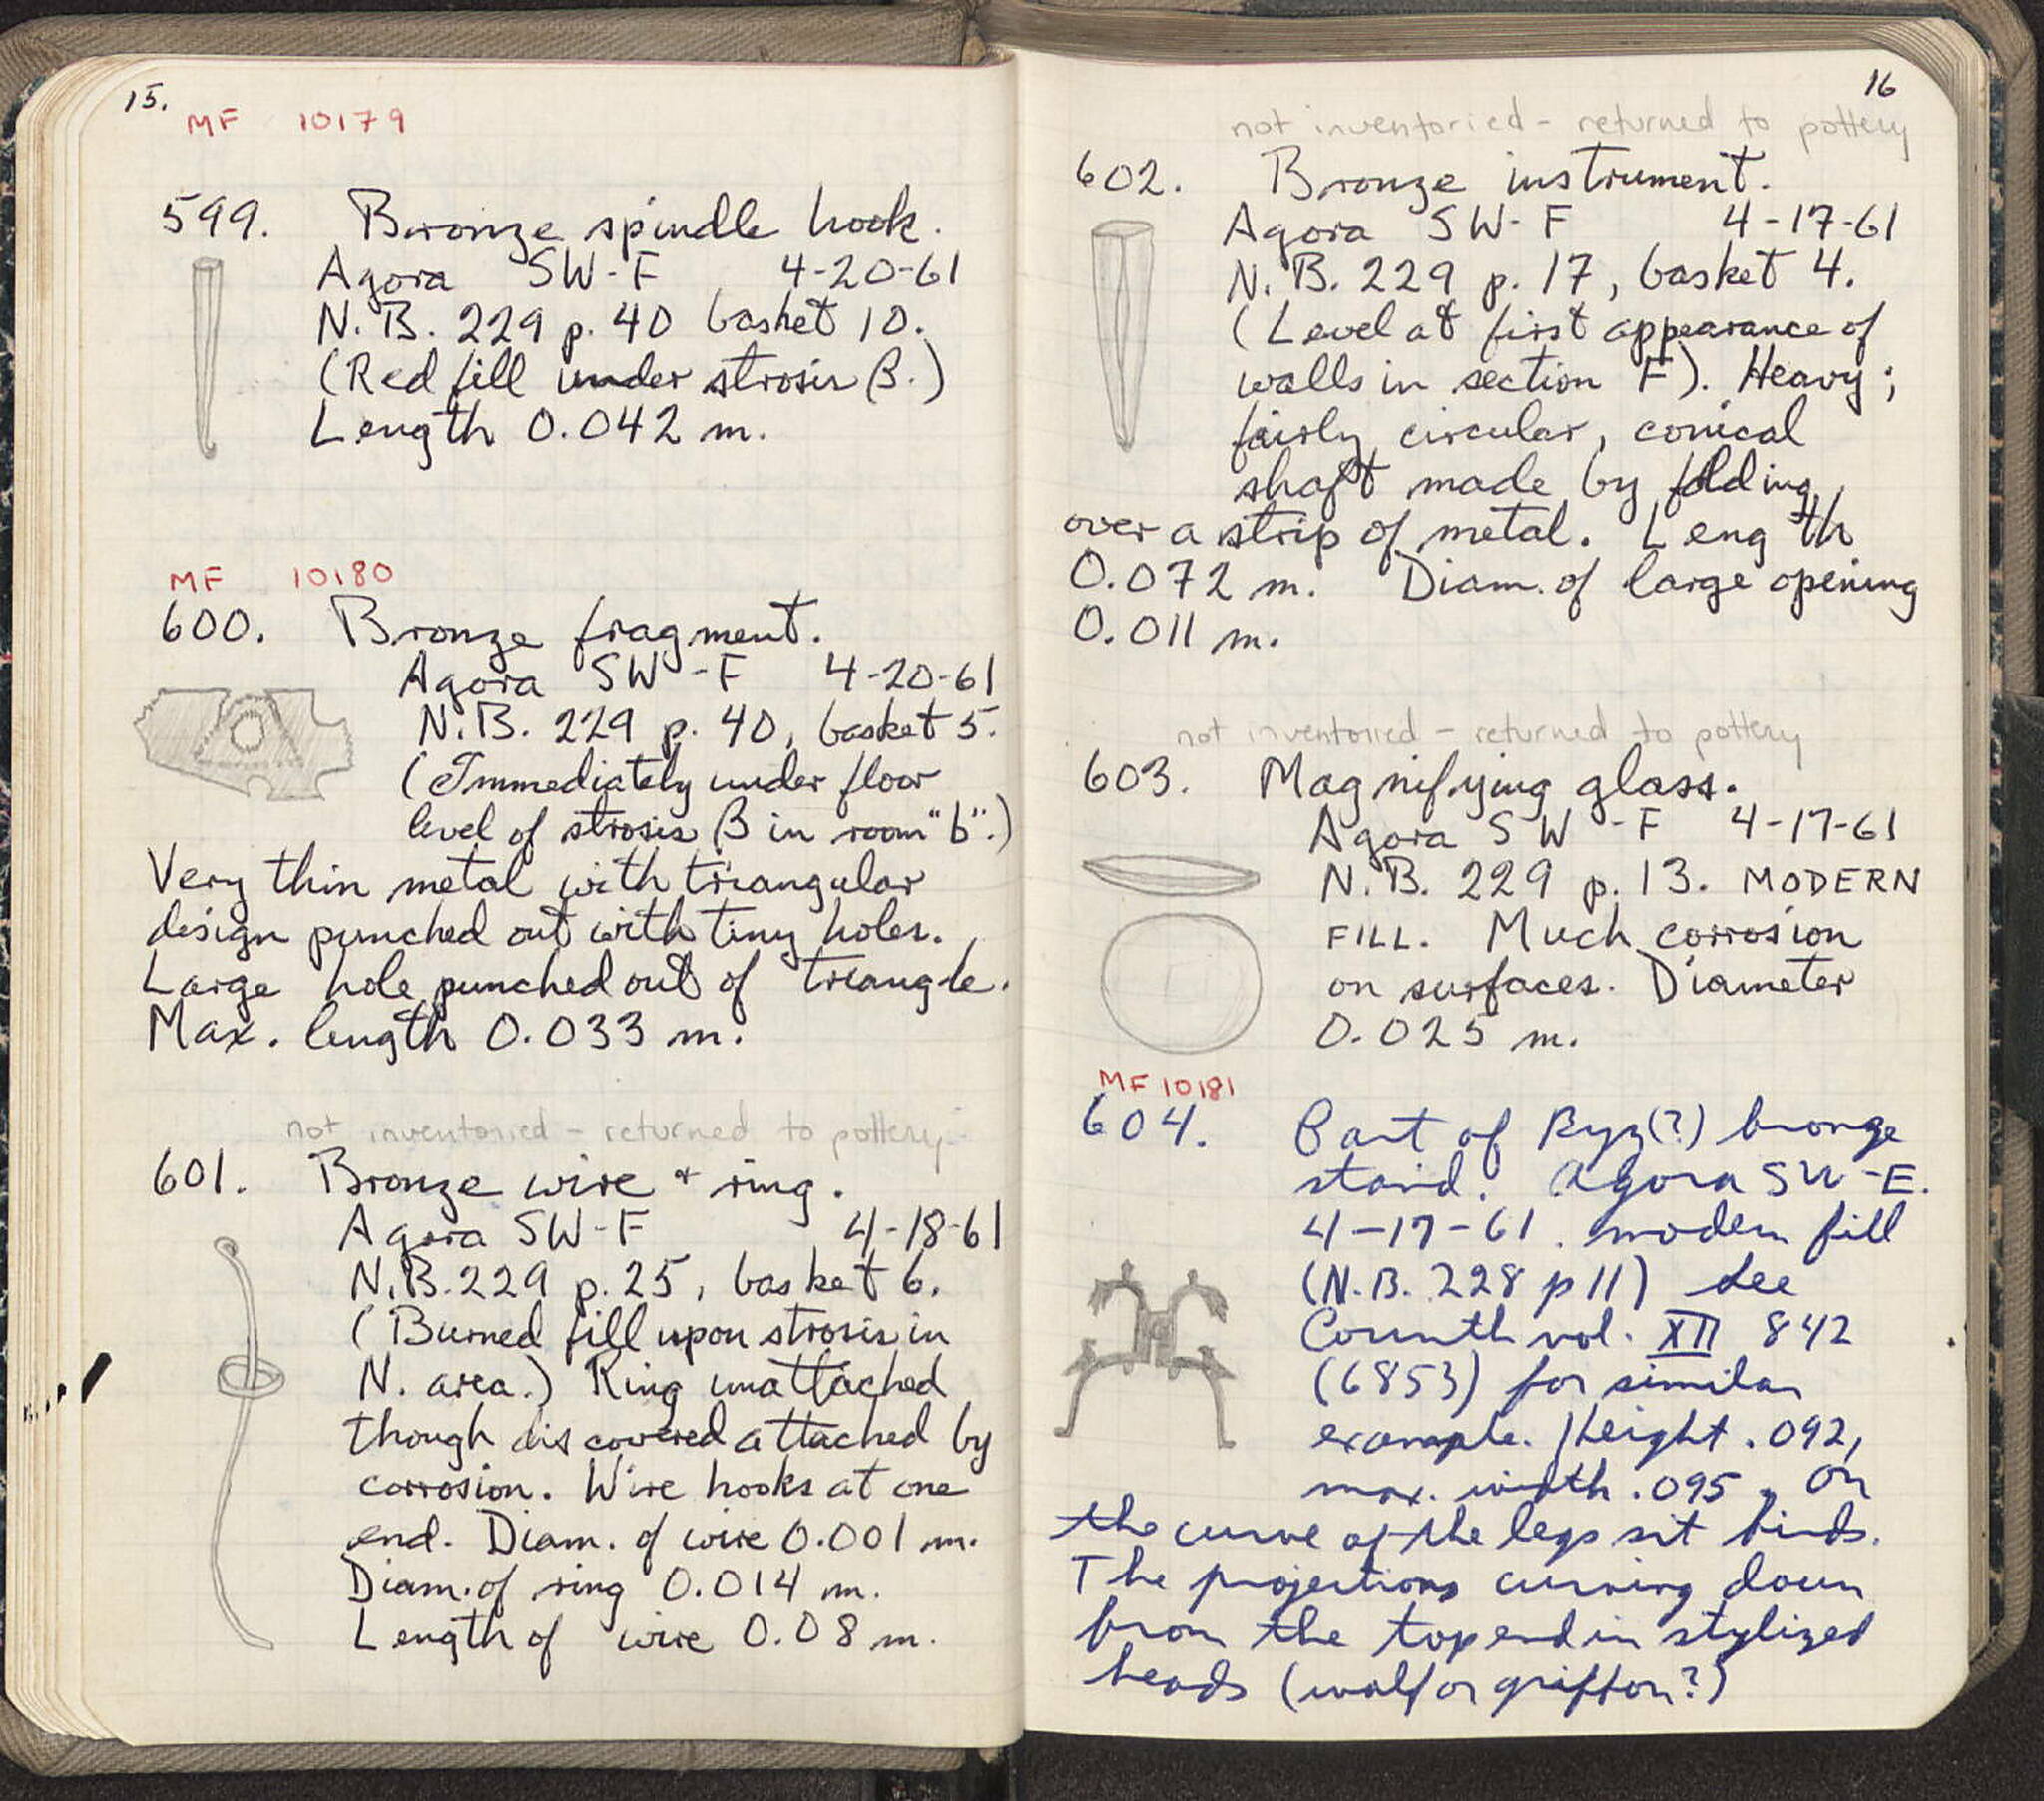 15.
MF 10179
599. Bronze spindle hook.
Agora SW-F 4-20-61
N.B. 229 p. 40 basket 10.
(Red fill under strosis β.)
Length 0.042 m.
MF 10180
600. Bronze fragment.
Agora SW-F 4-20-61
N.B. 229 p. 40, basket 5.
(Immediately under floor
level of strosis β in room "b".)
Very thin metal with triangular
design punched out with tiny holes.
Large hole punched out of triangle.
Max. length 0.033 m.
not inventoried - returned to pottery
601. Bronze wire + ring.
Agora SW-F 4-18-61
N.B. 229 p. 25, basket 6.
(Burned fill upon strosis in
N. area.) Ring unattached
though discovered attached by
corrosion. Wire hooks at one
end. Diam. of wire 0.001 m.
Diam. of ring 0.014 m.
Length of wire 0.08 m.
16
not inventoried - returned to pottery
602. Bronze instrument.
Agora SW-F 4-17-61
N.B. 229 p. 17, basket 4.
(Level at first appearance of
walls in section F). Heavy;
fairly circular, conical
shaft made by folding
over a strip of metal. Length
0.072 m. Diam. of large opening
0.011 m.
not inventoried - returned to pottery
603. Magnifying glass.
Agora SW-F 4-17-61
N.B. 229 p. 13. MODERN
FILL. Much corrosion
on surfaces. Diameter
0.025 m.
MF 10181
604. Part of Byz(?) bronze
stand. Agora SW-E.
4-17-61. modern fill
(N.B. 228 p 11) See
Corinth vol. XII 842
(6853) for similar
example. Height .092,
max. width .095. On
the curve of the legs sit birds.
The projections curving down
from the top end in stylized
heads (wolf or griffon?)